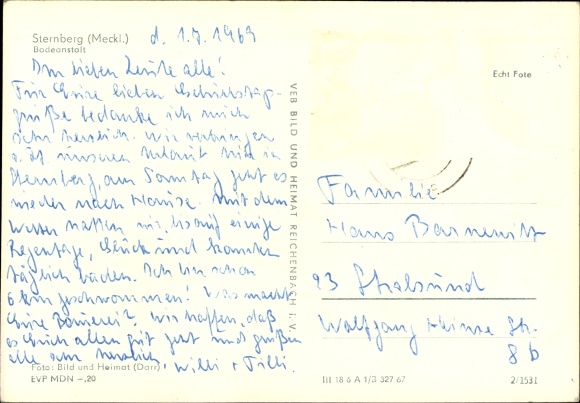 Sternberg (Meckl.)
Bodeanstalt
d. 1.7.1969
Ihr lieben Leute alle!
Für Eure lieben Geburtstags-
grüße bedanke ich mich
sehr herzlich. Wir verbringen
z. Zt unseren Urlaub hier in
Sternberg, am Samstag geht es
wieder nach Hause. Mit dem
Wetter hatten wir, bis auf einige
Regentage, Glück und konnten
täglich baden. Ich bin schon
6 km geschwommen! Was macht
Eure Bauerei? Wir hoffen, daß
es Euch allen gut geht und grüßen
alle sehr herzlich, Willi + Tilli.
Foto: Bild und Heimat (Darr)
EVP MDN –,20
VEB BILD UND HEIMAT REICHENBACH i. V.
Echt Foto
Familie
Hans Barnewitz
23 Stralsund
Wolfgang Heinze Str.
8b
III 18 6 A 1/B 327 67
2/1531